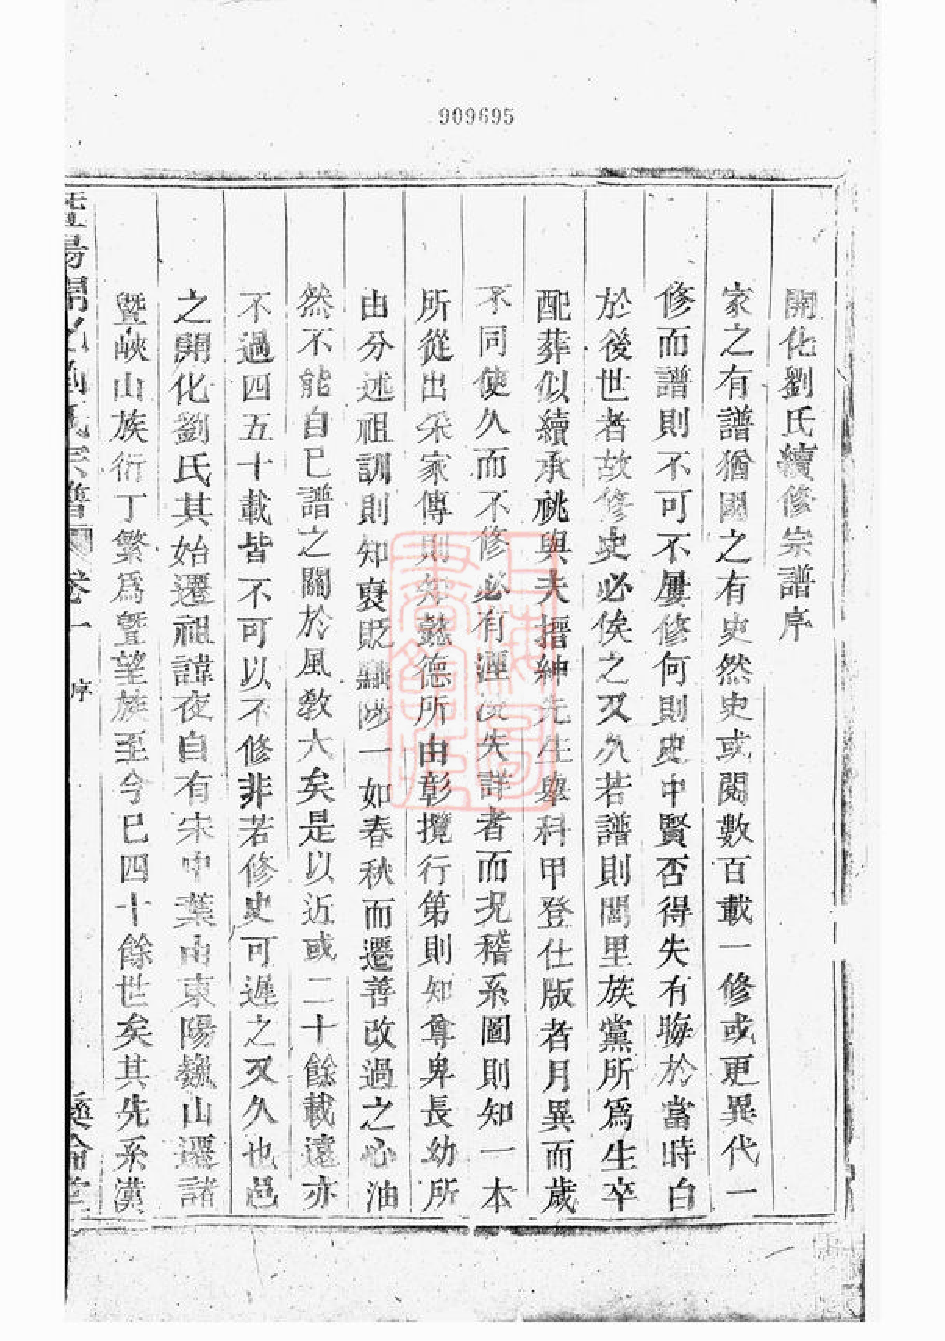 909695
開化劉氏續修宗譜序
家之有譜猶國之有史然史或閱數百載一修或更異代一
修而譜則不可不屢修何則史中賢否得失有晦於當時白
於後世者故修史必俟之又久若譜則閭里族黨所爲生卒
配葬似續承祧與夫搢紳先生舉科甲登仕版者月異而歲
不同使久而不修必有湮沒失詳者而況稽系圖則知一本
所從出采家傳則知懿德所由彰攬行第則知尊卑長幼所
由分述祖訓則知褒貶黜陟一如春秋而遷善改過之心油
然不能自已譜之關於風敎大矣是以近或二十餘載遠亦
不過四五十載皆不可以不修非若修史可遲之又久也邑
之開化劉氏其始遷祖諱夜自有宋中葉由東陽巍山遷諸
暨峽山族衍丁繁爲暨望族至今已四十餘世矣其先系漢
暨陽開化劉氏宗譜 卷一 序 彝倫堂